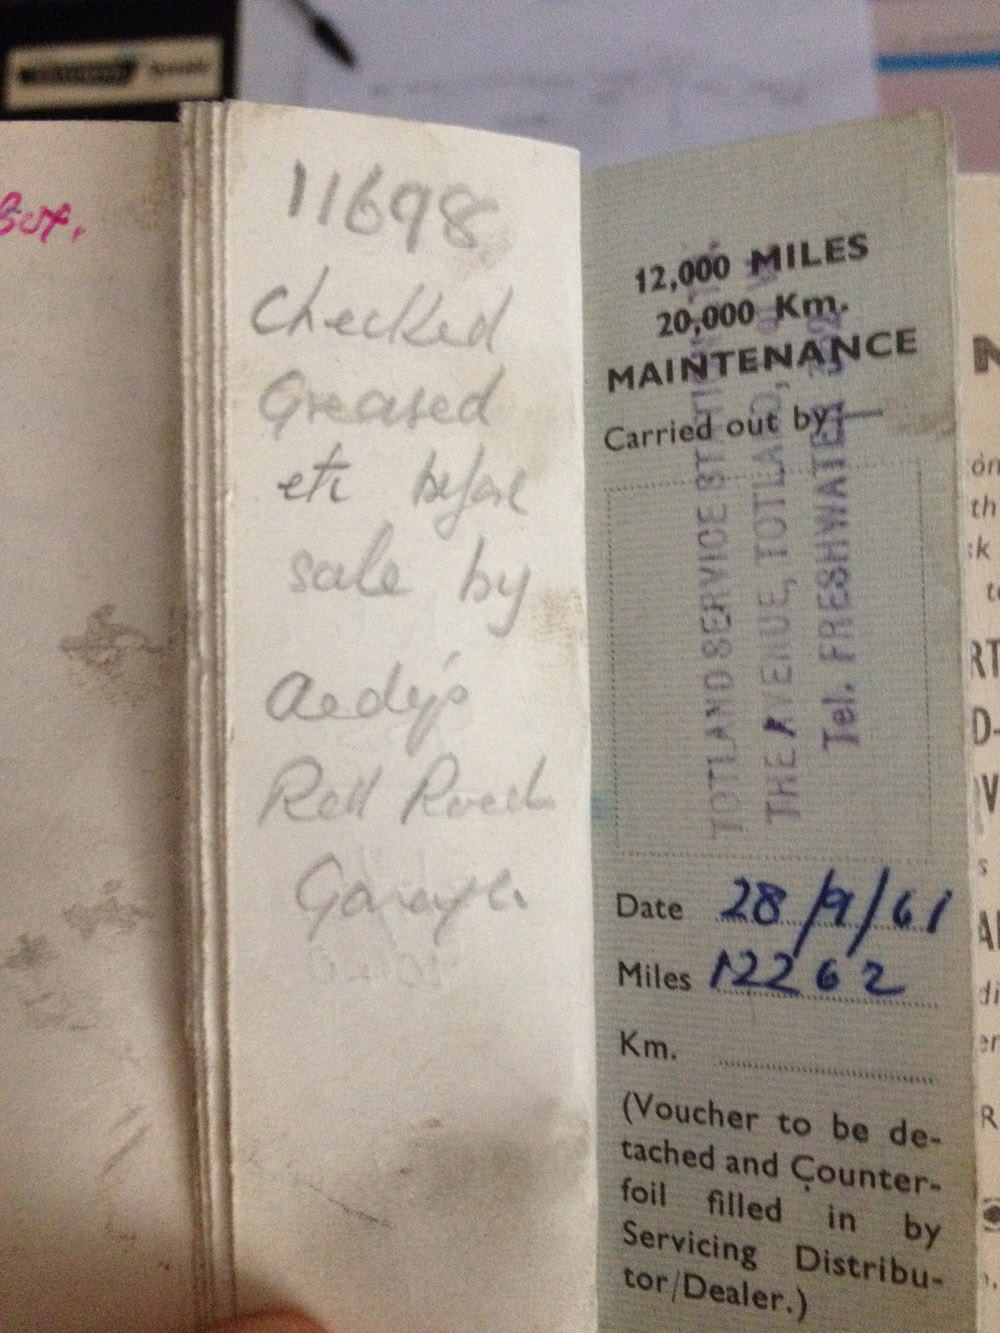 11698
Checked
Greased
etc before
sale by
Aedy's
Road
Garage.
12,000 MILES
20,000 Km.
MAINTENANCE
Carried out by
TOTLAND SERVICE
THE AVENUE, TOTLAND,
Tel. FRESHWATER
Date 28/9/61
Miles 12262
Km.
(Voucher to be de-
tached and Counter-
foil filled in by
Servicing Distribu-
tor/Dealer.)